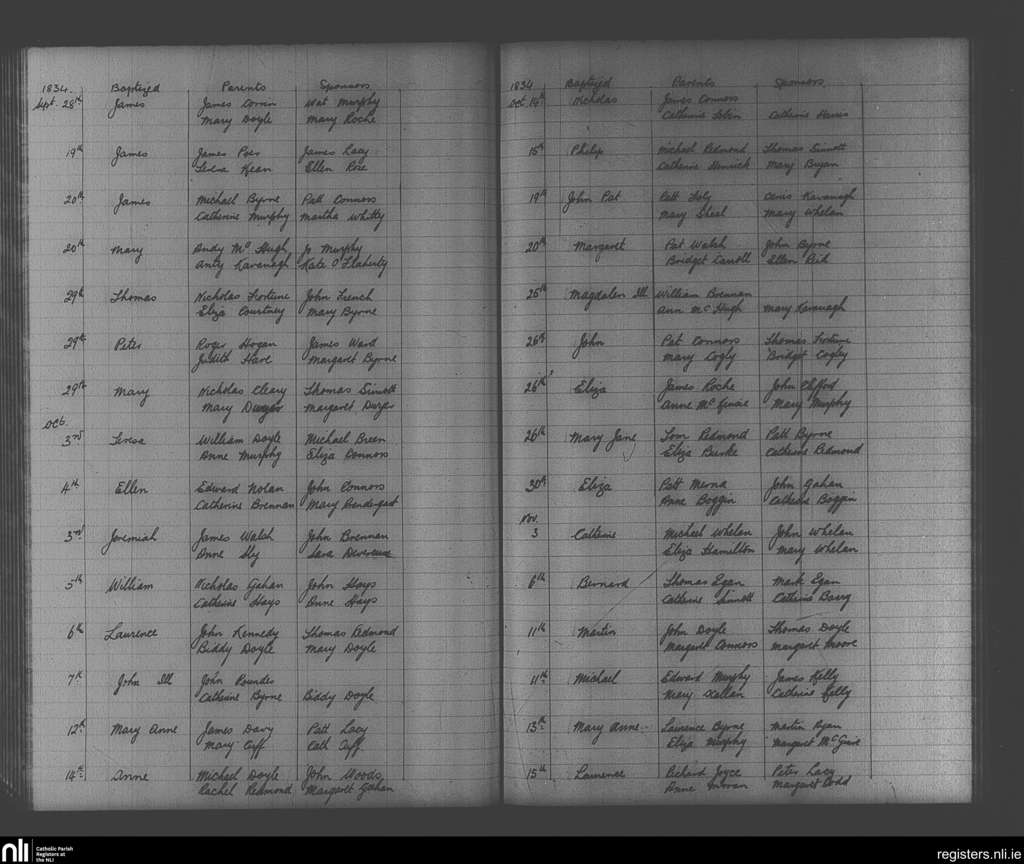 1834. Baptized Parents Sponsors
Sept. 28th James James Corrin Wat Murphy
Mary Doyle Mary Roche
19th James James Poer James Lacy
Teresa Kean Ellen Rose
20th James Michael Byrne Patt Connors
Catherine Murphy Martha Whitty
20th Mary Andy Mc Hugh Jo Murphy
Anty Kavanagh Kate O'Flaherty
29th Thomas Nicholas Fortune John French
Eliza Courtney Mary Byrne
29th Peter Roger Hogan James Ward
Judith Hare Margaret Byrne
29th Mary Nicholas Cleary Thomas Sinnott
Mary Dwyer Margaret Dwyer
Oct.
3rd Teresa William Doyle Michael Breen
Anne Murphy Eliza Connors
4th Ellen Edward Nolan John Connors
Catherine Brennan Mary Prendergast
3rd Jeremiah James Walsh John Brennan
Anne Sly Sara Devereux
5th William Nicholas Gahan John Hays
Catherine Hays Anne Hays
6th Laurence John Kennedy Thomas Redmond
Biddy Doyle Mary Doyle
7th John Ill John Poundes
Catherine Byrne Biddy Doyle
12th Mary Anne James Davy Patt Lacy
Mary Cuff Cath Cuff
14th Anne Michael Doyle John Woods
Rachel Redmond Margaret Gahan
1834 Baptized Parents Sponsors
Oct 14th Nicholas James Connors
Catherine Tobin Catherine Davies
15th Philip Michael Redmond Thomas Sinnott
Catherine Kenrick Mary Bryan
19th John Pat Patt Foly Denis Kavanagh
Mary Sheal Mary Whelan
20th Margaret Pat Walsh John Byrne
Bridget Carroll Ellen Reid
25th Magdalen Ill William Brennan
Ann Mc Hugh Mary Kavanagh
26th John Pat Connors Thomas Fortune
Mary Cogly Bridget Cogley
26th Eliza James Roche John Clifford
Anne Mc Guire Mary Murphy
26th Mary Jane Tom Redmond Patt Byrne
Eliza Burke Catherine Redmond
30th Eliza Patt Merna John Gahan
Anne Boggin Catherine Boggin
Nov.
3 Catherine Michael Whelan John Whelan
Eliza Hamilton Mary Whelan
6th Bernard Thomas Egan Mark Egan
Catherine Sinnott Catherine Barry
11th Martin John Doyle Thomas Doyle
Margaret Connors Margaret Moore
11th Michael Edward Murphy James Kelly
Mary Callan Catherine Kelly
13th Mary Anne Laurence Byrne Martin Ryan
Eliza Murphy Margaret Mc Guire
15th Laurence Richard Joyce Peter Lacy
Anne Moran Margaret Dodd
nli
Catholic Parish
Registers at
the NLI
registers.nli.ie